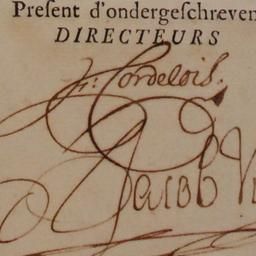 Preſent d'ondergeſchreven
DIRECTEURS
Fr: Cordelois.
Jacob V